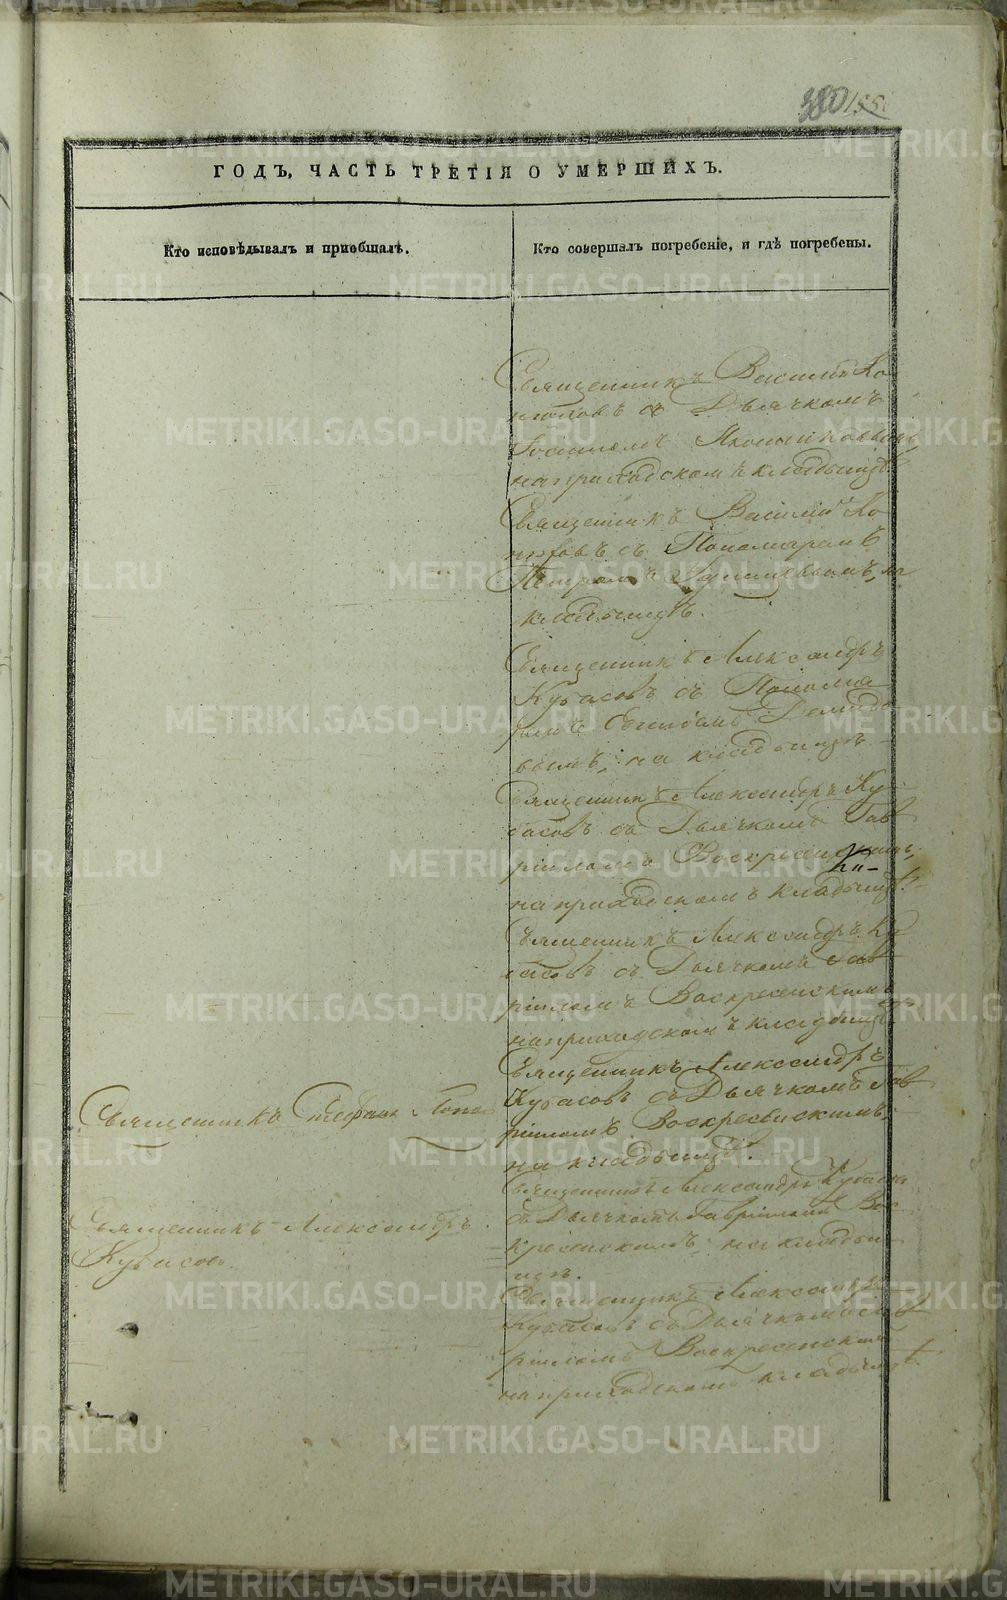 380
ГОДЪ, ЧАСТЬ ТРЕТІЯ О УМЕРШИХЪ.
Кто исповѣдывалъ и пріобщалъ.
Кто совершалъ погребеніе, и гдѣ погребены.
Священникъ Василій Ко
съ Дьячкомъ
на приходскомъ кладбищѣ.
Священникъ Василій Ко
съ Пономаремъ
Петромъ на
кладбищѣ.
Священникъ Александръ
Кубасовъ съ Понома
ремъ Демидо
вымъ, на кладбищѣ
Священникъ Александръ Ку
басовъ съ Дьячкомъ Гав
ріиломъ Воскресенскимъ,
на приходскомъ кладбищѣ.
Священникъ Александръ Ку
басовъ съ Дьячкомъ Гав
ріиломъ Воскресенскимъ
на приходскомъ кладбищѣ
Священникъ Александръ
Кубасовъ съ Дьячкомъ Гав
ріиломъ Воскресенскимъ,
на кладбищѣ.
Священникъ Стефанъ Попо
Священникъ Александръ Кубасовъ
съ Дьячкомъ Гавріиломъ Вос
кресенскимъ, на кладби
щѣ.
Священникъ Александръ
Кубасовъ.
Священникъ Александръ
Кубасовъ съ Дьячкомъ Гав
ріиломъ Воскресенскимъ
на приходскомъ кладбищѣ.
METRIKI.GASO-URAL.RU